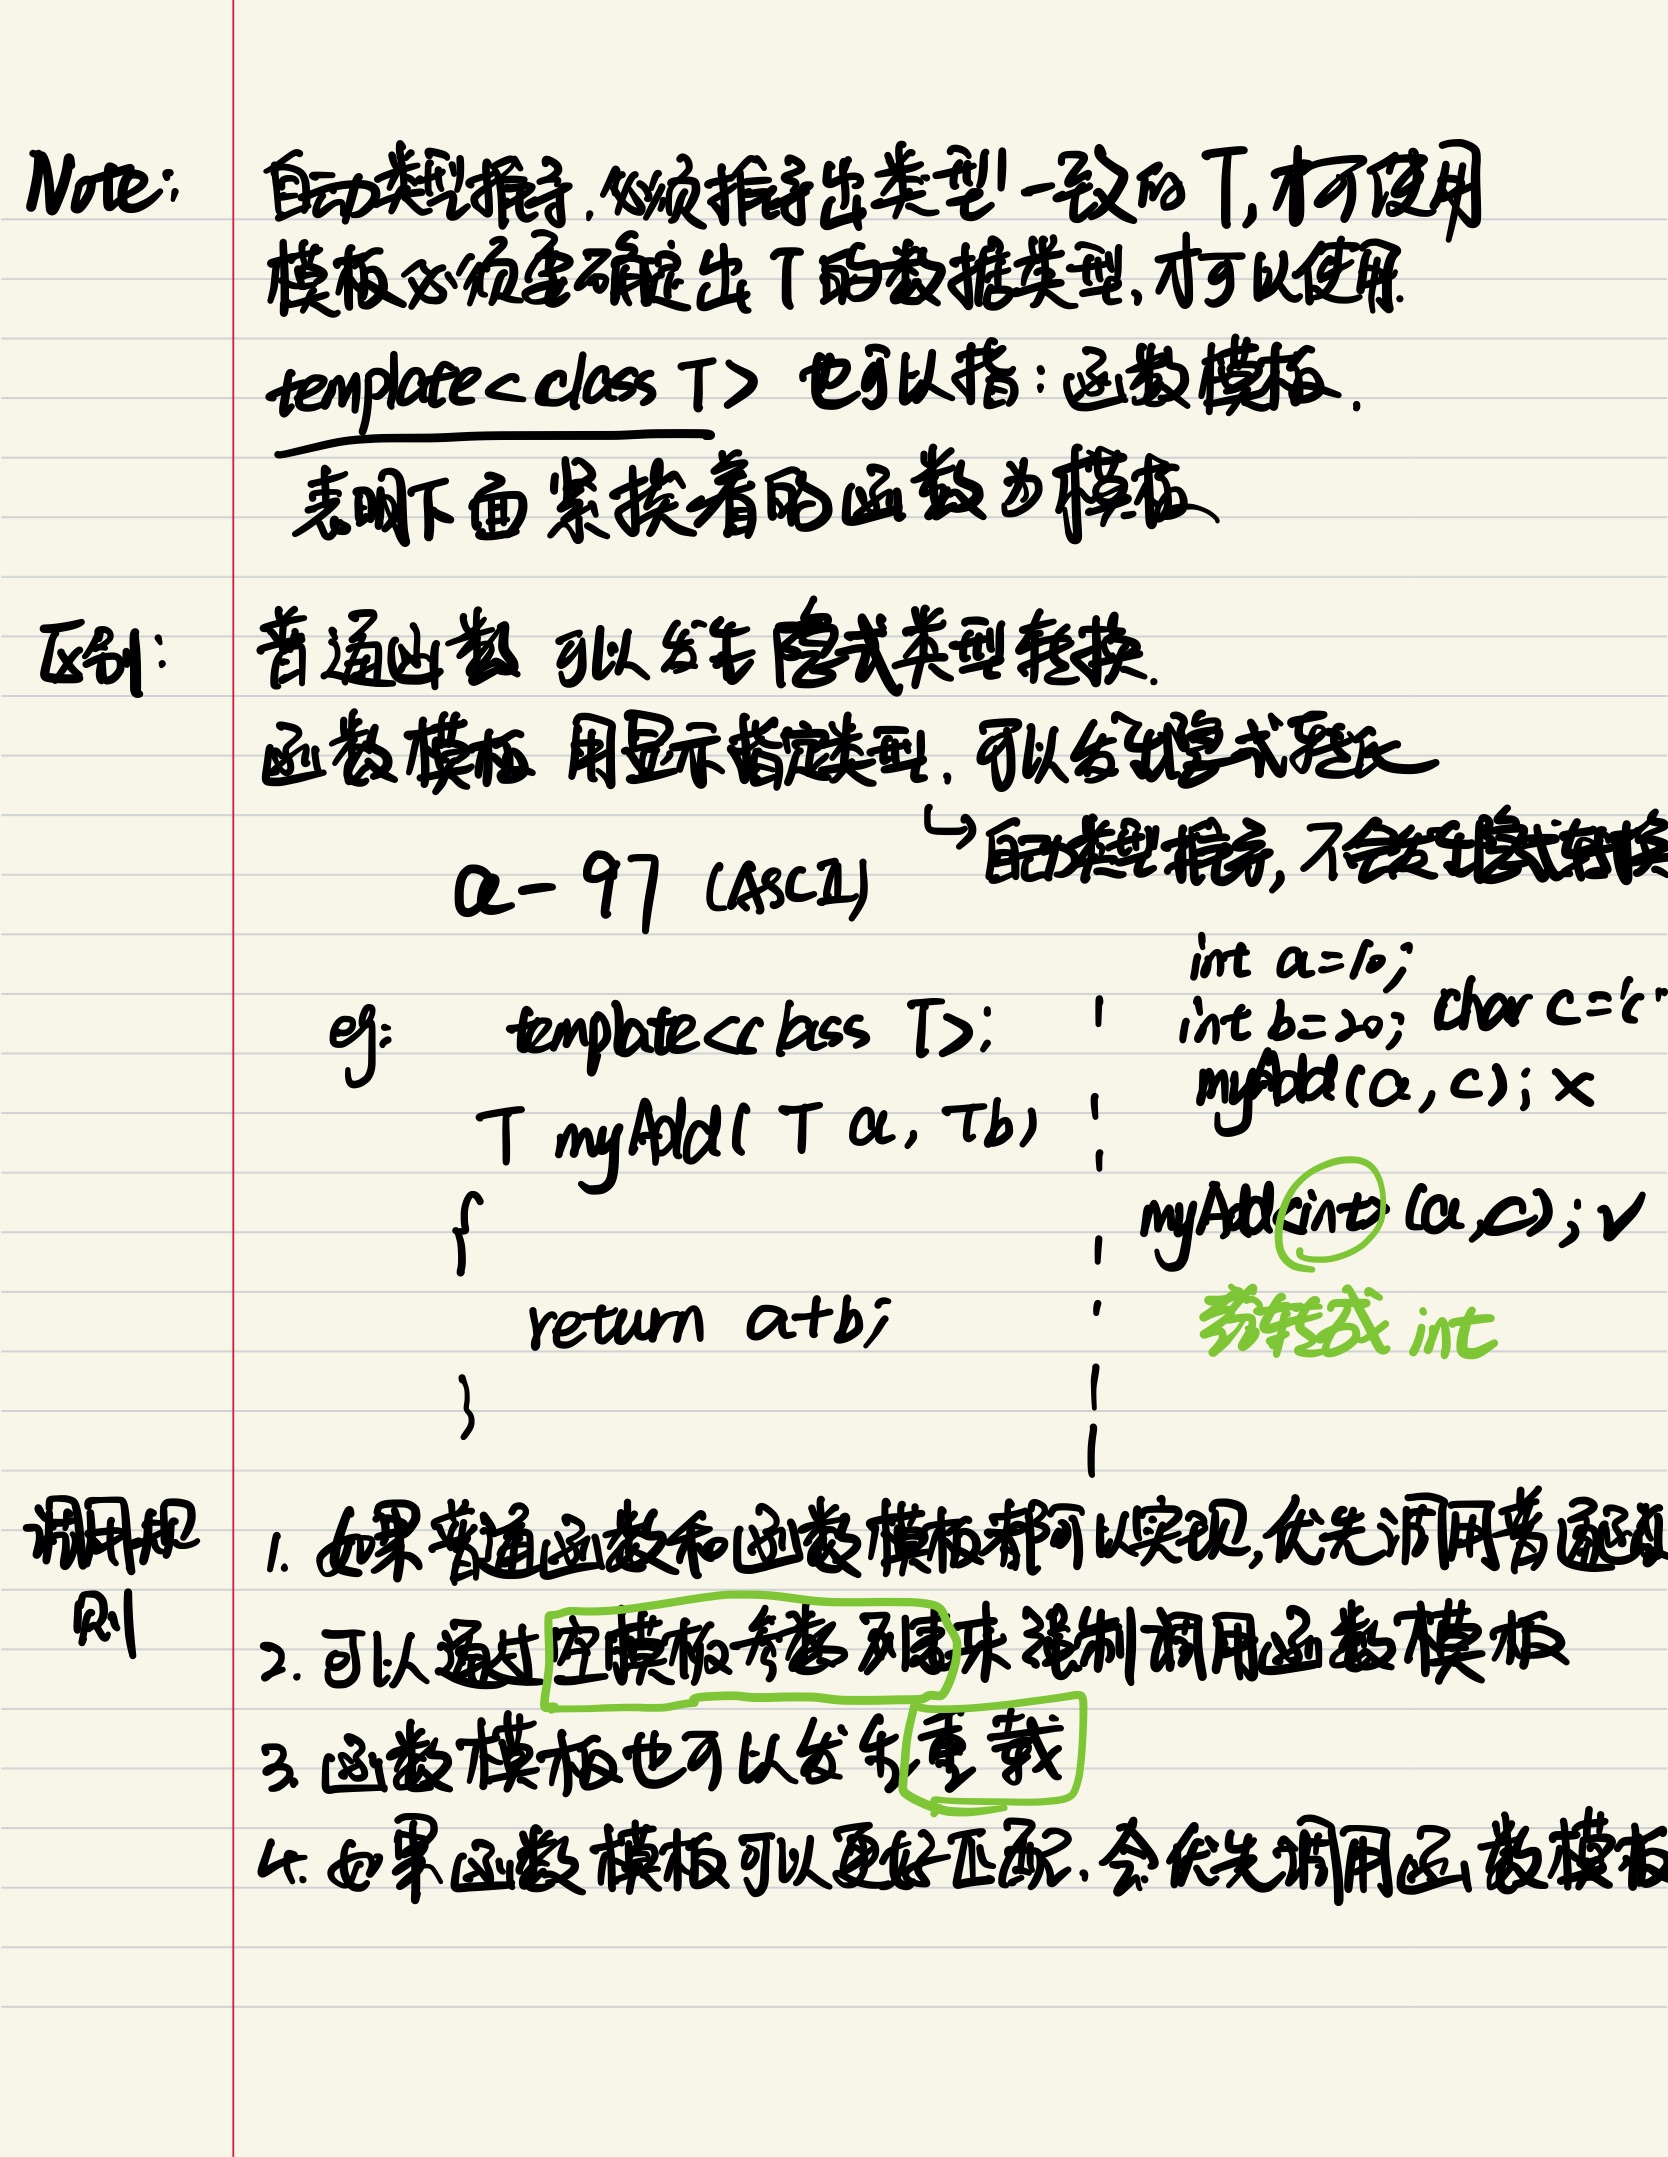 Note:
自动类型推导,必须推导出类型一致的 T,才可使用
模板必须要确定出 T 的数据类型,才可以使用.
template<class T> 也可以指:函数模板.
表明下面紧挨着的函数为模板
区别:
普通函数 可以发生隐式类型转换.
函数模板 用显示指定类型,可以发生隐式转换
↳自动类型推导,不会发生隐式转换
a - 97 (ASCII)
int a=10;
int b=20; char c='c'
myAdd(a,c); ×
myAdd<int>(a,c); √
转成 int
eg: template<class T>;
T myAdd( T a, T b)
{
return a+b;
}
调用规则
1. 如果普通函数和函数模板都可以实现,优先调用普通函数
2. 可以通过空模板参数列表来强制调用函数模板
3. 函数模板也可以发生重载
4. 如果函数模板可以更好匹配,会优先调用函数模板